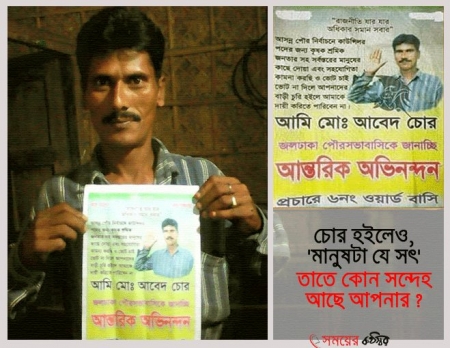 "রাজনীতি যার যার
অধিকার সমান সবার"
আসন্ন পৌর নির্বাচনে কাউন্সিলর
পদের জন্য কৃষক শ্রমিক
জনতার সহ সর্বস্তরের মানুষের
কাছে দোয়া এবং সহযোগিতা
কামনা করছি ও ভোট চাই
ভোট না দিলে আপনাদের
বাড়ী চুরি হইলে আমাকে
দায়ী করিতে পারিবেন না।
আমি মোঃ আবেদ চোর
জলঢাকা পৌরসভাবাসিকে জানাচ্ছি
আন্তরিক অভিনন্দন
প্রচারে ৬নং ওয়ার্ড বাসি
আমি মোঃ আবেদ চোর
জলঢাকা পৌরসভাবাসিকে জানাচ্ছি
আন্তরিক অভিনন্দন
চোর হইলেও,
'মানুষটা যে সৎ'
তাতে কোন সন্দেহ
আছে আপনার ?
সময়ের কণ্ঠস্বর